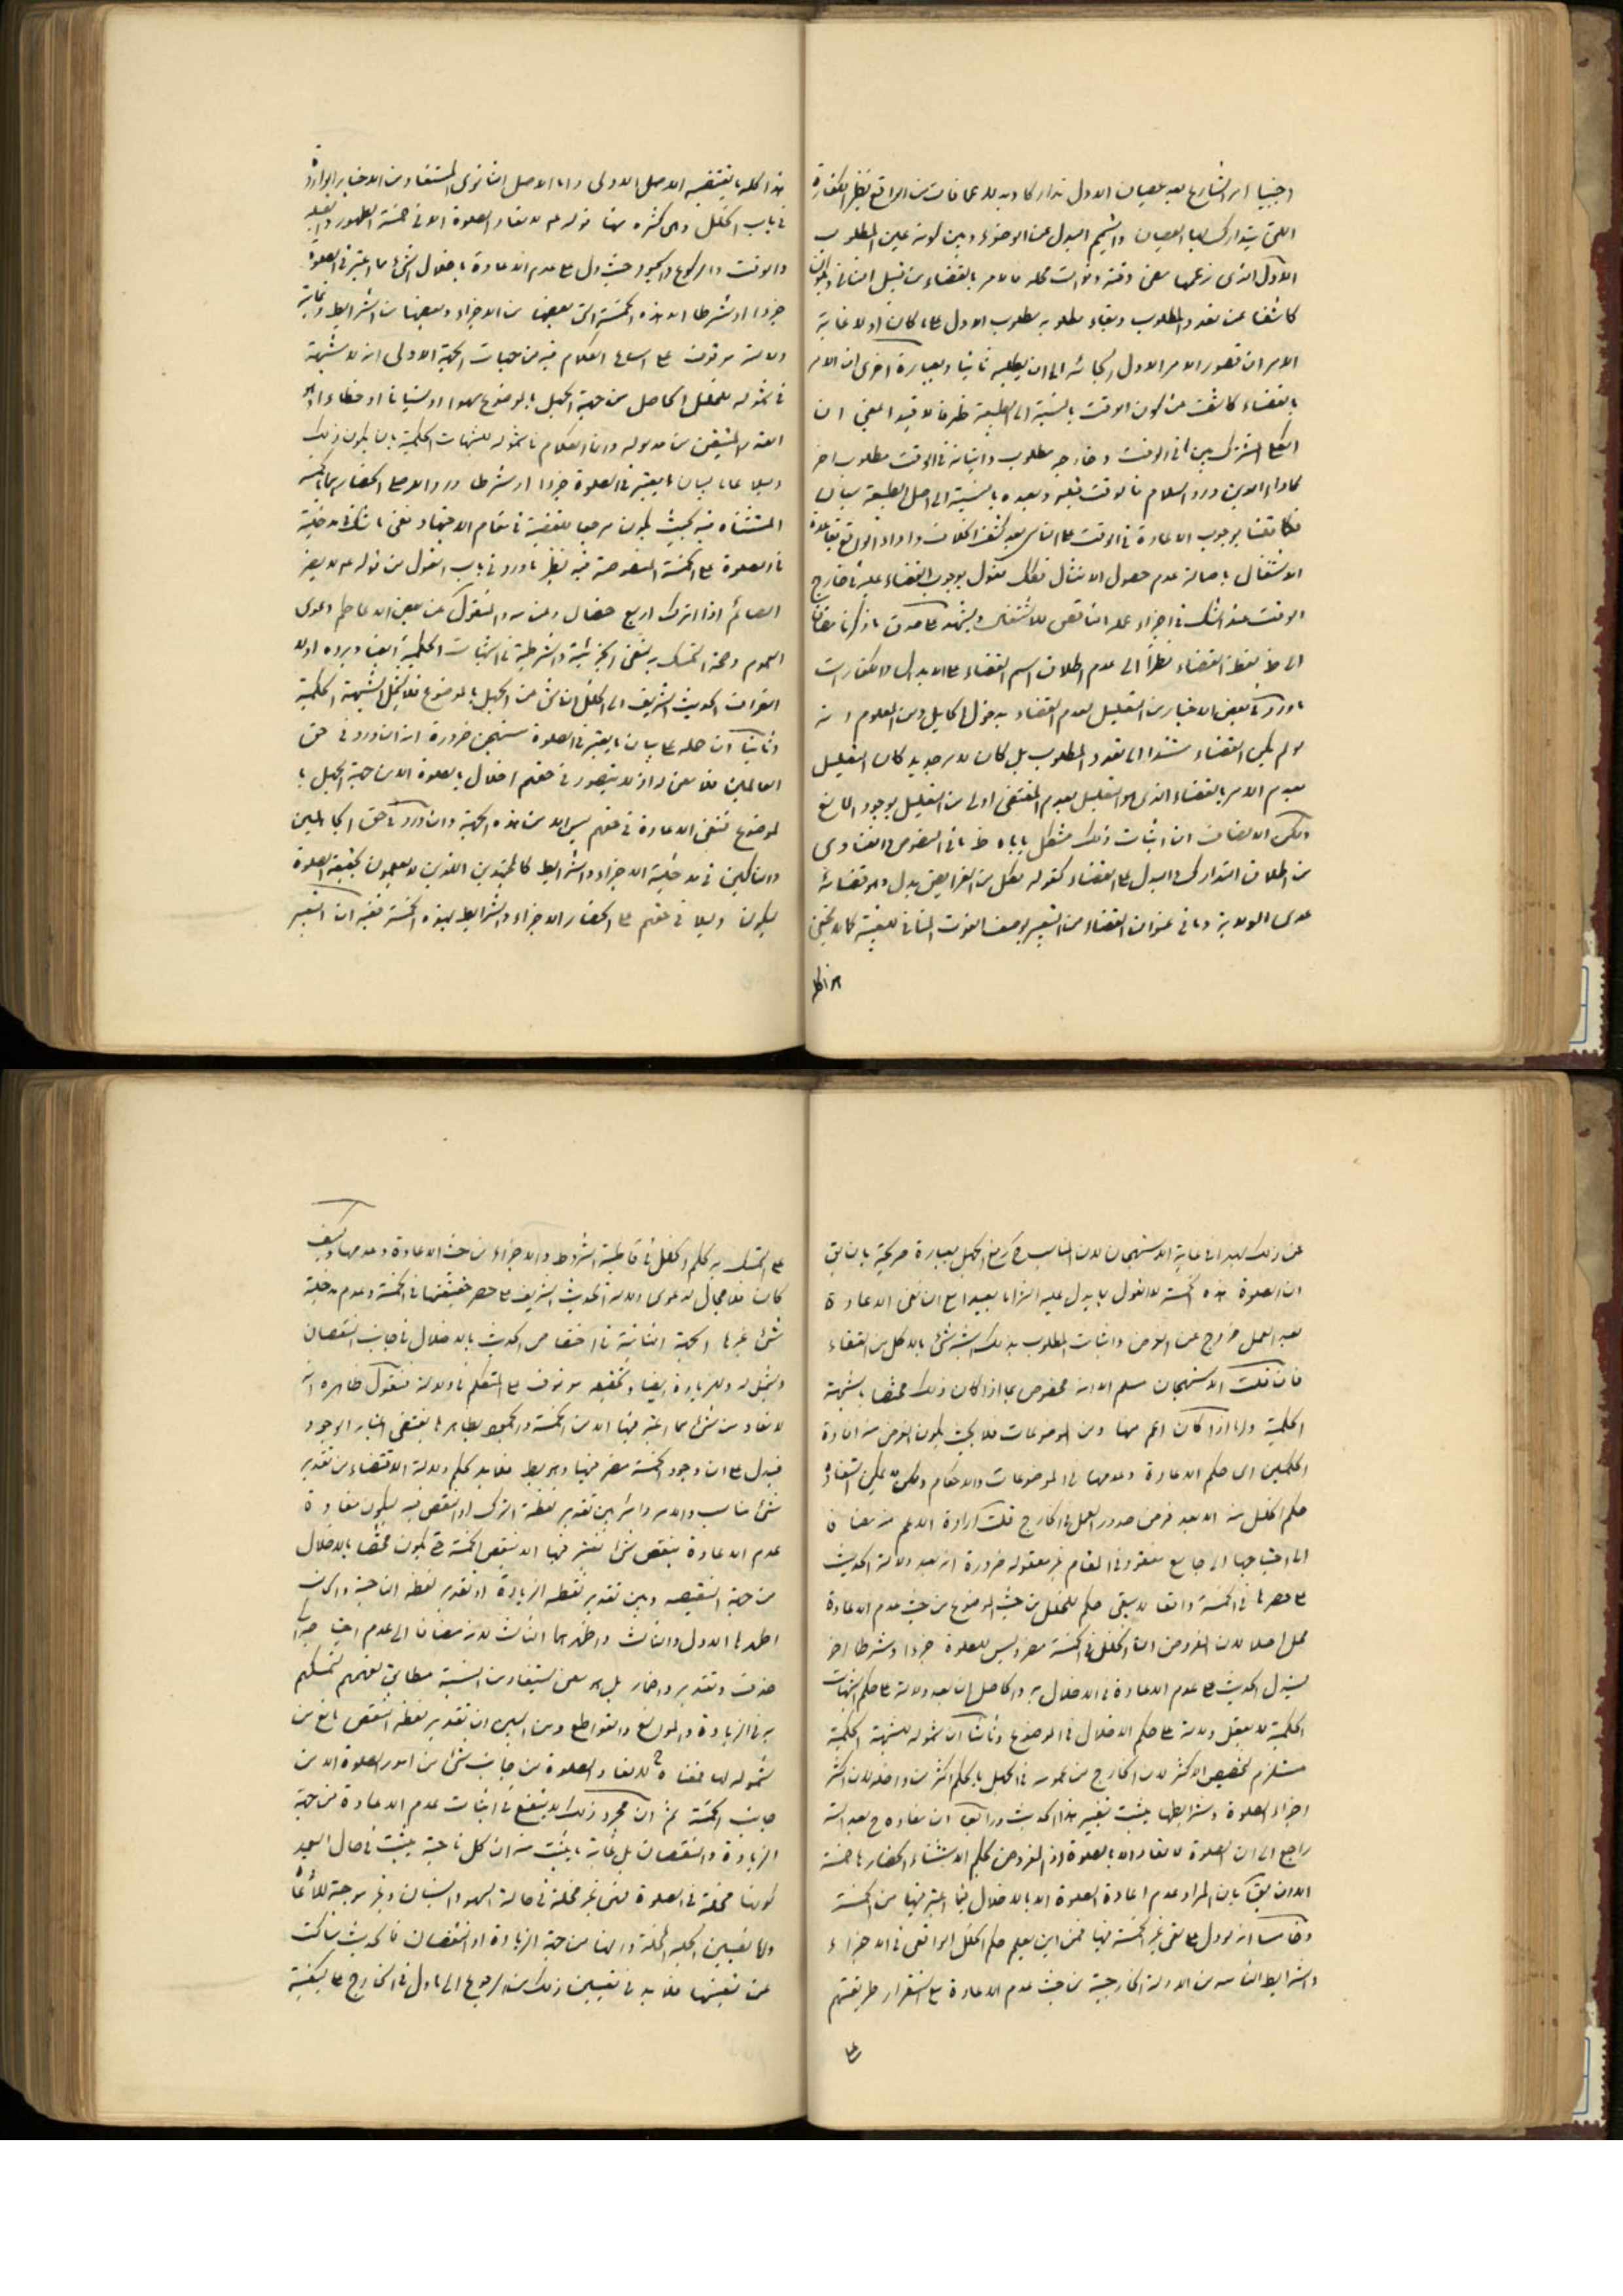 اجنبيا امر الشارع بعد عصيان الاول تداركا وبدلا عما فات من الواقع نظير الكفارة
التي يتدارك بها العصيان والتيمم المبدل عن الوضوء وبين كونه عين المطلوب
الاول الذى زعمها مضى وقته وفوات محله فالامر بالقضاء من قبيل الثانى
كاشفا عن تعدد المطلوب وبقاء مطلوبه مطلوب الاول على ما كان اولا غاية
الامر ان قصور الامر الاول الجائه الى ان يطلبه ثانيا وبعبارة اخرى ان الامر
بالقضاء كاشف عن كون الوقت بالنسبة الى الطبيعة ظرفا لا قيدا اعنى ان
الكلى المشترك بين ما فى الوقت وخارجه مطلوب واتيانه فى الوقت مطلوب اخر
كاداء الدين ورد السلام فالوقت قبله وبعده بالنسبة الى اصل الطبيعة سيان
فكما قلنا بوجوب الاعادة فى الوقت على الناسى بعد كشف الخلاف
الاشتغال باصالة عدم حصول الامتثال فكك نقول بوجوب القضاء عليه فى خارج
الوقت عند الشك فى اجزاء عمله الناقص للاشتغال ويشهد على صدق ما ذكرنا مضافا
الى ظ لفظ القضاء نظرا الى عدم اطلاق اسم القضاء على الابدال والكفارات
ما ورد فى بعض الاخبار من التعليل لعدم القضاء ومن المعلوم انه
لو لم يكن القضاء مستندا الى تعدد المطلوب بل كان لامر جديد كان التعليل
بعدم الامر بالقضاء الذى هو التعليل بعدم المقتضى اولى من التعليل بوجود المانع
ولكن الانصاف ان اثبات ذلك مشكل ياباه ظ ما فى النصوص والفتاوى
من اطلاق التدارك والبدل على القضاء كقوله لكل من الفرايض بدل وهو قضائه
عدى الولاية وما فى عنوان القضاء من التعبير بوصف الفوت المنافى للعينية كما لا يخفى
هذا كله ما يقتضيه الاصل الاولى واما الاصل الثانوى المستفاد من الاخبار الواردة
فى باب الخلل وهى كثيرة منها قوله ع لا تعاد الصلوة الا من خمسة الطهور والقبلة
والوقت والركوع والسجود حيث دل على عدم الاعادة باخلال شئ مما اعتبر فى الصلوة
جزءا او شرطا الا هذه الخمسة التى بعضها من الاجزاء وبعضها من الشرايط وتمامية
دلالته موقوف على الكلام فيه من جهات الجهة الاولى انه لا شبهة
فى شموله للخلل الحاصل من جهة الجهل بالموضوع سهوا او نسيانا او خطاء اذ هو
القدر المتيقن من مدلوله وانما الكلام فى شموله للشبهات الحكمية بان يكون ذلك
دليلا عاما لبيان ما يعتبر فى الصلوة جزءا او شرطا ودالا على انحصارهما بالخمسة
المستثناة فيه بحيث يكون مرجعا للفقيه فى مقام الاجتهاد ونفى ما شك فى مدخليته
فى الصلوة على الخمسة المنصوصة فيه نظير ما ورد فى باب الصوم من قوله ع لا يضر
الصائم اذا اترك اربع خصال ومن هنا المنقول عن بعض الاعاظم دعوى
العموم وصحة التمسك به لنفى الجزئية والشرطية فى الشبهات الحكمية ايضا ويرده اولا
انصراف الحديث الشريف الى الخلل الناشى من الجهل بالموضوع فلا يشمل الشبهة الحكمية
وثانيا ان حمله على بيان ما يعتبر فى الصلوة مستهجن ضرورة انه ان ورد فى حق
العالمين فلا معنى له اذ لا يتصور فى حقهم اخلال بالصلوة الا من جهة الجهل با
لموضوع فنفى الاعادة فى حقهم ليس الا من هذه الجهة وان ورد فى حق الجاهلين
والشاكين فى مدخلية الاجزاء والشرايط كالمجتهدين الذين لا يعلمون بحقيقة الصلوة
ليكون دليلا فى حقهم على انحصار الاجزاء والشرايط بهذه الخمسة ففيه ان التعبير
عن ذلك بعيد الى غاية الاستهجان لان المناسب لرفع الجهل بعبارة صريحة بان يق
ان الصلوة هذه الخمسة لا القول بما يدل عليه التزاما بعيدا مع ان نفى الاعادة
بعد العمل خروج عن الفرض واثبات المطلوب بذلك اشبه شئ بالاكل من القفاء
فان قلت الاستهجان مسلم الا انه مخصوص بما اذا كان ذلك مختصا بالشبهة
الحكمية واما اذا كان اعم منها ومن الموضوعات فلا بحيث يكون الغرض منه افادة
الحكمين اى حكم الاعادة وعدمها فى الموضوعات والاحكام ولكن لا يمكن استفادة
حكم الخلل منه الا بعد فرض صدور العمل فى الخارج قلت ارادة الاعم منه مضافا
الى احتياجها الى جامع مفقود فى المقام غير معقولة ضرورة انه بعد دلالة الحديث
على حصرها فى الخمسة واقعا لا يبقى حكم للخلل من حيث الموضوع من حيث عدم الاعادة
محل اصلا لان المفروض ان الخلل فى الخمسة مضر وليس للصلوة جزءا وشرطا اخر
لينزل الحديث على عدم الاعادة فى الاخلال به والحاصل ان بعد دلالته على حكم الشبهات
الحكمية لا يعقل دلالته على حكم الاخلال فى الموضوع وثالثا ان شموله للشبهة الحكمية
مستلزم لتخصيص الاكثر لان الخارج من عمومه فى الجهل بالحكم اكثر من داخله لان اكثر
اجزاء الصلوة وشرايطها يثبت بغير هذا الحديث ورابعا ان مفاده ح بعد
راجع الى ان الصلوة لا تعاد الا بالصلوة اذ المفروض بحكم الاستثناء انحصارها خمسة
الا ان يق بان المراد عدم اعادة الصلوة الا بالاخلال فيما اعتبر فيها من الخمسة
وخامسا انه لو دل على نفى غير الخمسة فيها فمن اين يعلم حكم الخلل الواقعى فى الاجزاء
والشرايط الثابتة من الادلة الخارجية من حيث عدم الاعادة مع استقرار طريقتهم
على
على التمسك به لحكم الخلل فى قاطبة الشروط والاجزاء من حيث الاعادة وعدمها وكيف
كان فلا مجال لدعوى دلالة الحديث الشريف على حصر حقيقتها فى الخمسة وعدم مدخلية
شئ غيرها الجهة الثانية فى اختصاص الحديث بالاخلال فى جانب النقصان
وشموله للزيادة ايضا وتحقيقه موقوف على التكلم فى دلالته فنقول ظاهره انه
لا تعاد من شئ مما اعتبر فيها الا من الخمسة والخمسة بظاهرها يقتضى اعتبار الوجود
فيدل على ان وجود الخمسة مضر فيها وهو بط فلابد بحكم دلالة الاقتضاء من تقدير
شئ مناسب والامر دائر بين تقدير لفظة الترك او النقص فيه ليكون مفاده
عدم الاعادة بنقص شئ يعتبر فيها الا بنقص الخمسة حتى يكون مختصا بالاخلال
من جهة النقيصة وبين تقدير لفظة الزيادة او تقدير لفظة الناحية والجانب
اظهرها الاول والثالث واظهرهما الثالث لانه مضافا الى عدم احتياجه الى
حذف وتقدير واضمار بل هو معنى يستفاد من النسبة مطابق لفهمهم لتمسكهم
به فى الزيادة والموانع والقواطع ومن البين ان تقدير لفظة النقص مانع من
شموله لها فمعناه ح لا تعاد الصلوة من جانب شئ من امور الصلوة الا من
جانب الخمسة ثم ان مجرد ذلك لا ينفع فى اثبات عدم الاعادة من جهة
الزيادة والنقصان بل غاية ما يثبت منه ان كل ناحية يثبت فى حال العمد
كونها مخلة فى الصلوة فهى غير مخلة فى حالة السهو والنسيان وغير موجبة للاعادة
واما تعيين الجهة المخلة وانها من جهة الزيادة او النقصان فالحديث ساكت
عن تعينها فلابد فى تعيين ذلك من الرجوع الى ما دل فى الخارج على كيفية